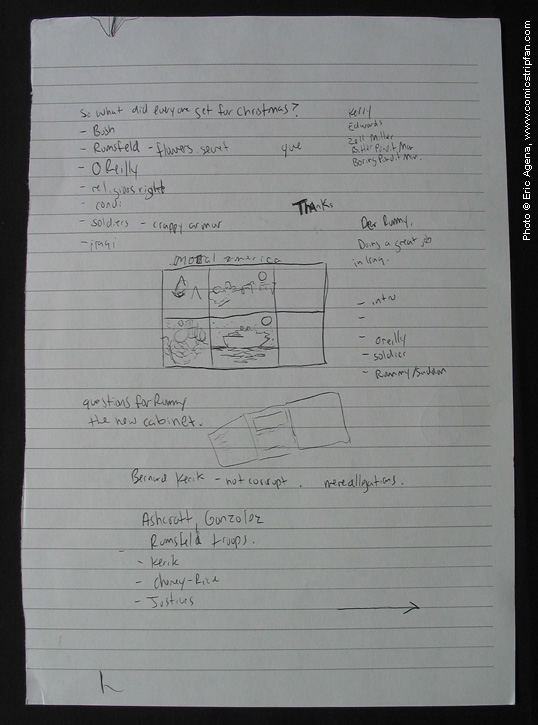 So what did everyone get for Christmas?
- Bush
- Rumsfeld - flowers secret
que
- O'Reilly
- religious right
- condi
- soldiers - crappy armor
- iraqi
Kelly
Edwards
Zell Miller
Butter Pundit Mur
Boring Pundit Mur.
Thanks
Dear Rummy,
Doing a great job
in Iraq.
moral america
- intro
-
- oreilly
- soldier
- Rummy/Saddam
questions for Rummy
the new cabinet.
Bernard Kerik - not corrupt. mere allegations.
Ashcroft, Gonzolez
- Rumsfeld troops.
- Kerik
- Cheney-Rice
- Justices
Photo © Eric Agena, www.comicstripfan.com